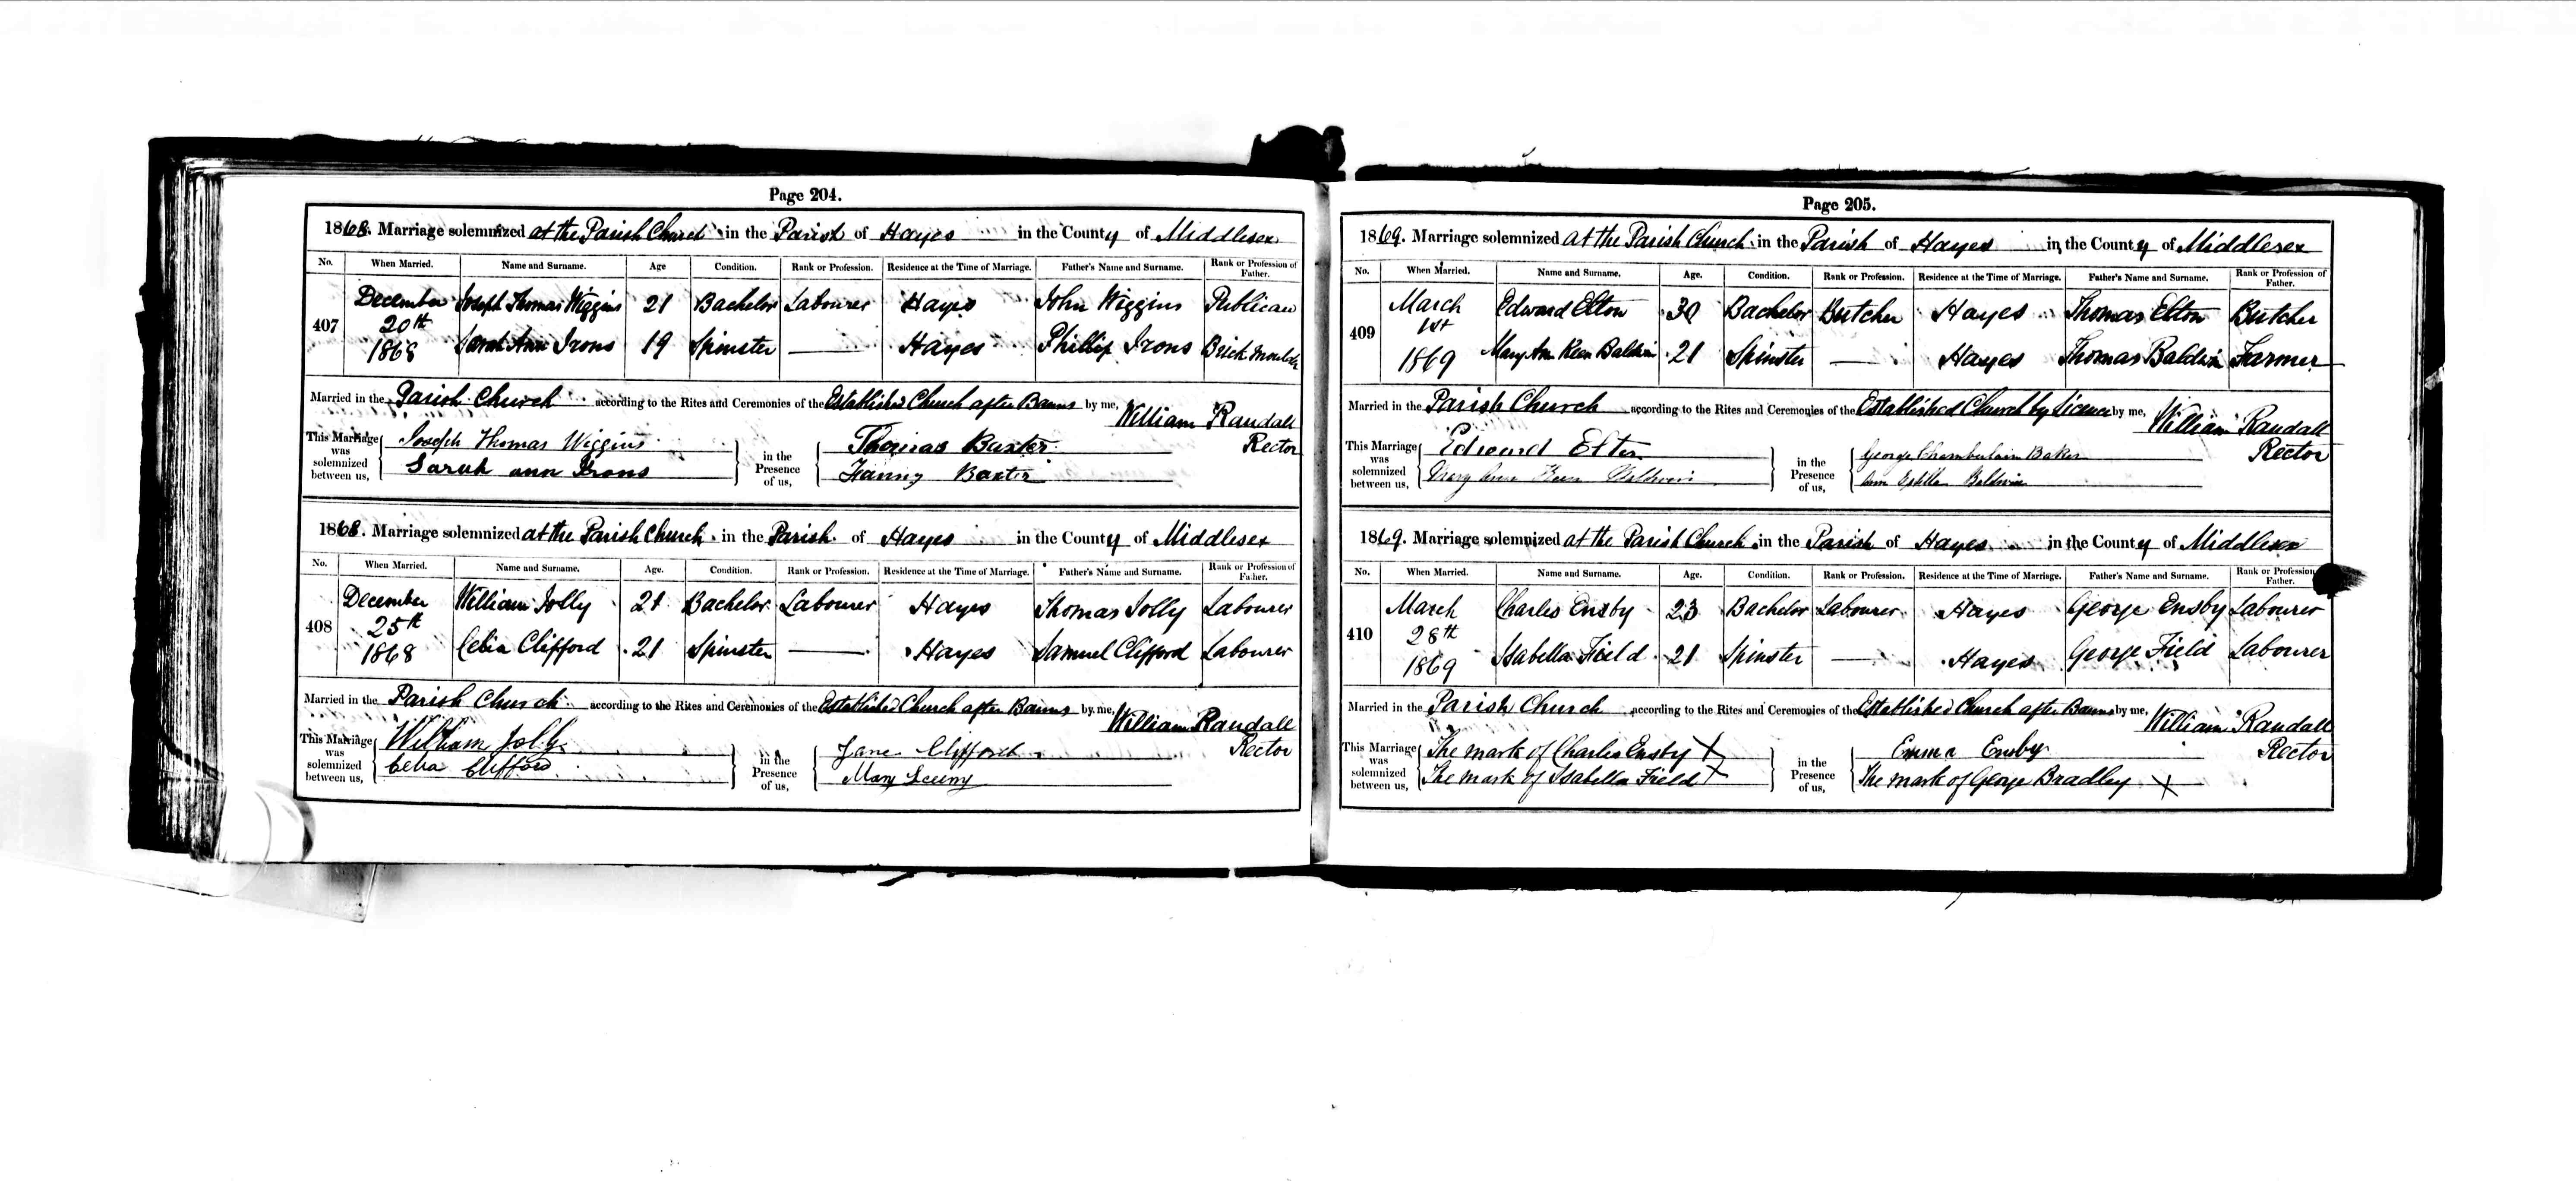 Page 204.
1868. Marriage solemnized at the Parish Church in the Parish of Hayes in the County of Middlesex
No. When Married. Name and Surname. Age Condition. Rank or Profession. Residence at the Time of Marriage. Father's Name and Surname. Rank or Profession of Father.
407 December 20th 1868 Joseph Thomas Wiggins 21 Bachelor Labourer Hayes John Wiggins Publican
Sarah Ann Irons 19 Spinster — Hayes Phillip Irons Brick Moulder
Married in the Parish Church according to the Rites and Ceremonies of the Established Church after Banns by me, William Randall Rector
This Marriage was solemnized between us, Joseph Thomas Wiggins in the Presence of us, Thomas Baxter
Sarah ann Irons Fanny Baxter
1868. Marriage solemnized at the Parish Church in the Parish of Hayes in the County of Middlesex
No. When Married. Name and Surname. Age. Condition. Rank or Profession. Residence at the Time of Marriage. Father's Name and Surname. Rank or Profession of Father.
408 December 25th 1868 William Jolly 21 Bachelor Labourer Hayes Thomas Jolly Labourer
Celia Clifford 21 Spinster — Hayes Samuel Clifford Labourer
Married in the Parish Church according to the Rites and Ceremonies of the Established Church after Banns by me, William Randall Rector
This Marriage was solemnized between us, William Jolly in the Presence of us, Jane Clifford
Celia Clifford Mary
Page 205.
1869. Marriage solemnized at the Parish Church in the Parish of Hayes in the County of Middlesex
No. When Married. Name and Surname. Age. Condition. Rank or Profession. Residence at the Time of Marriage. Father's Name and Surname. Rank or Profession of Father.
409 March 1st 1869 Edward Elton 30 Bachelor Butcher Hayes Thomas Elton Butcher
Mary Ann Keen Baldwin 21 Spinster — Hayes Thomas Baldwin Farmer
Married in the Parish Church according to the Rites and Ceremonies of the Established Church by Licence by me, William Randall Rector
This Marriage was solemnized between us, Edward Elton in the Presence of us, George Chamberlain Baker
Mary Ann Keen Baldwin Ann Baldwin
1869. Marriage solemnized at the Parish Church in the Parish of Hayes in the County of Middlesex
No. When Married. Name and Surname. Age. Condition. Rank or Profession. Residence at the Time of Marriage. Father's Name and Surname. Rank or Profession of Father.
410 March 28th 1869 Charles Ensby 23 Bachelor Labourer Hayes George Ensby Labourer
Isabella Field 21 Spinster — Hayes George Field Labourer
Married in the Parish Church according to the Rites and Ceremonies of the Established Church after Banns by me, William Randall Rector
This Marriage was solemnized between us, The mark of Charles Ensby X in the Presence of us, Emma Ensby
The mark of Isabella Field X The mark of George Bradley X